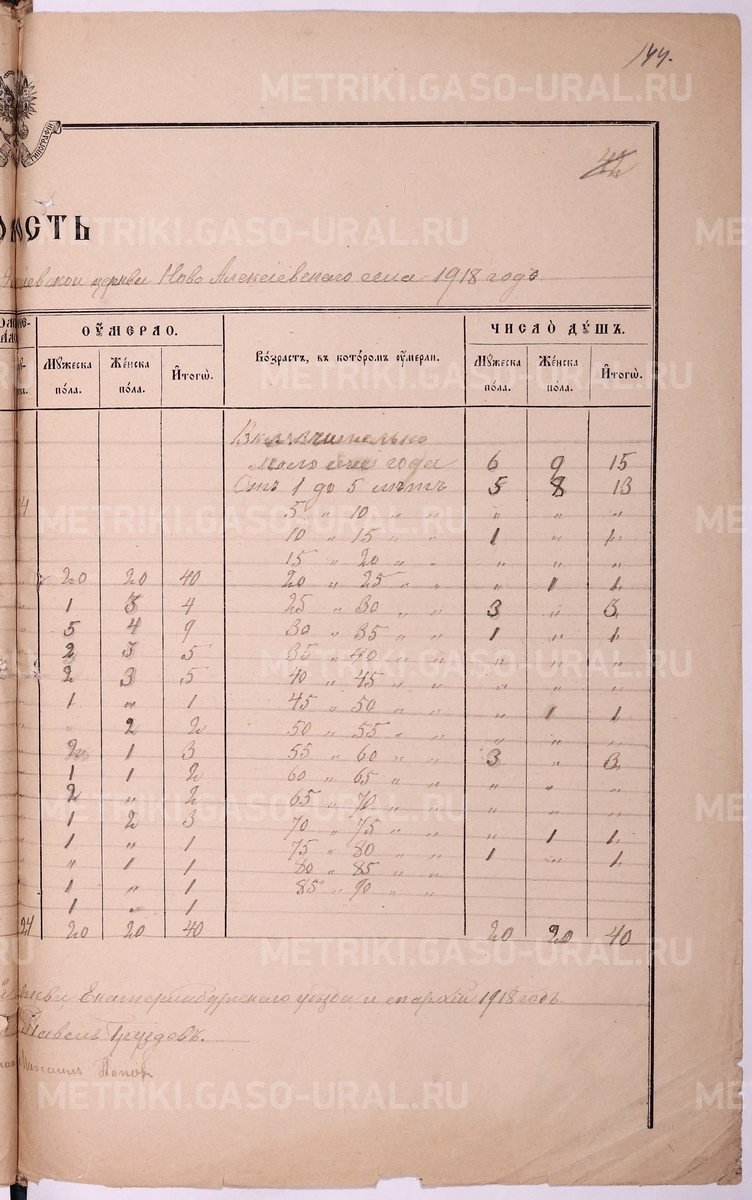 144.
METRIKI.GASO-URAL.RU
ТИПОГРАФІИ
42
ОМСТЬ
церкви Ново Алексѣевскаго села 1918 годъ.
ОУМЕРЛО.
ЧИСЛО ДУШЪ.
Мужеска пола. Женска пола. Итогѡ. Возрастъ, въ которомъ оумерли. Мужеска пола. Женска пола. Итогѡ.
года 6 9 15
Отъ 1 до 5 лѣтъ 5 8 13
24 5 „ 10 „ „ „ „ „
10 „ 15 „ „ 1 „ 1
15 „ 20 „ „ „ „ „
20 20 40 20 „ 25 „ „ „ 1 1
1 3 4 25 „ 30 „ „ 3 „ 3
5 4 9 30 „ 35 „ „ 1 „ 1
2 3 5 35 „ 40 „ „ „ „ „
2 3 5 40 „ 45 „ „ „ „ „
1 „ 1 45 „ 50 „ „ „ 1 1
„ 2 2 50 „ 55 „ „ „ „ „
2 1 3 55 „ 60 „ „ 3 „ 3
1 1 2 60 „ 65 „ „ „ „ „
2 „ 2 65 „ 70 „ „ „ „ „
1 2 3 70 „ 75 „ „ „ 1 1
1 „ 1 75 „ 80 „ „ 1 „ 1
„ 1 1 80 „ 85 „ „
1 „ 1 85 „ 90 „ „
1 „ 1
24 20 20 40 20 20 40
Екатеринбургскаго уѣзда и епархіи 1918 годъ.
Павелъ Груздовъ.
Михаилъ Попов